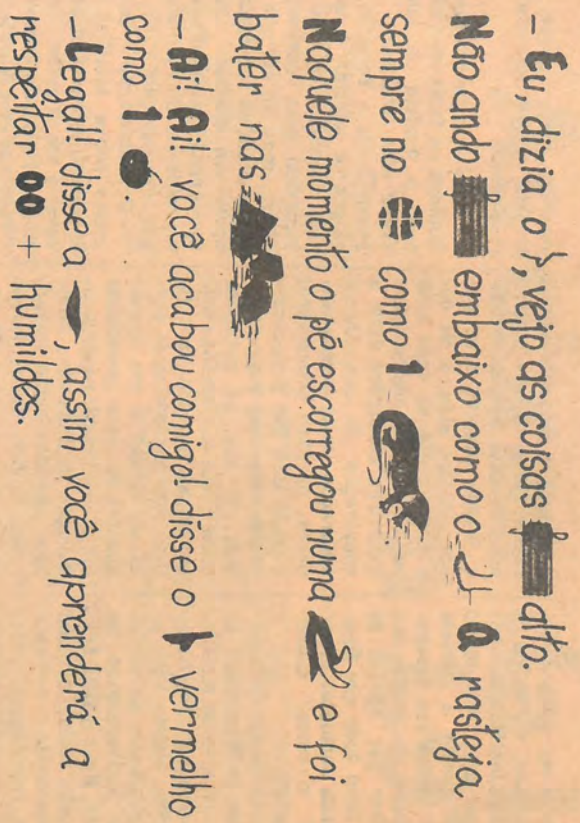 – Eu, dizia o , vejo as coisas alto.
Não ando embaixo como o a rasteja
sempre no como 1
Naquele momento o pé escorregou numa e foi
bater nas
– Ai! Ai! você acabou comigo! disse o vermelho
como 1 .
– Legal! disse a , assim você aprenderá a
respeitar 00 + humildes.